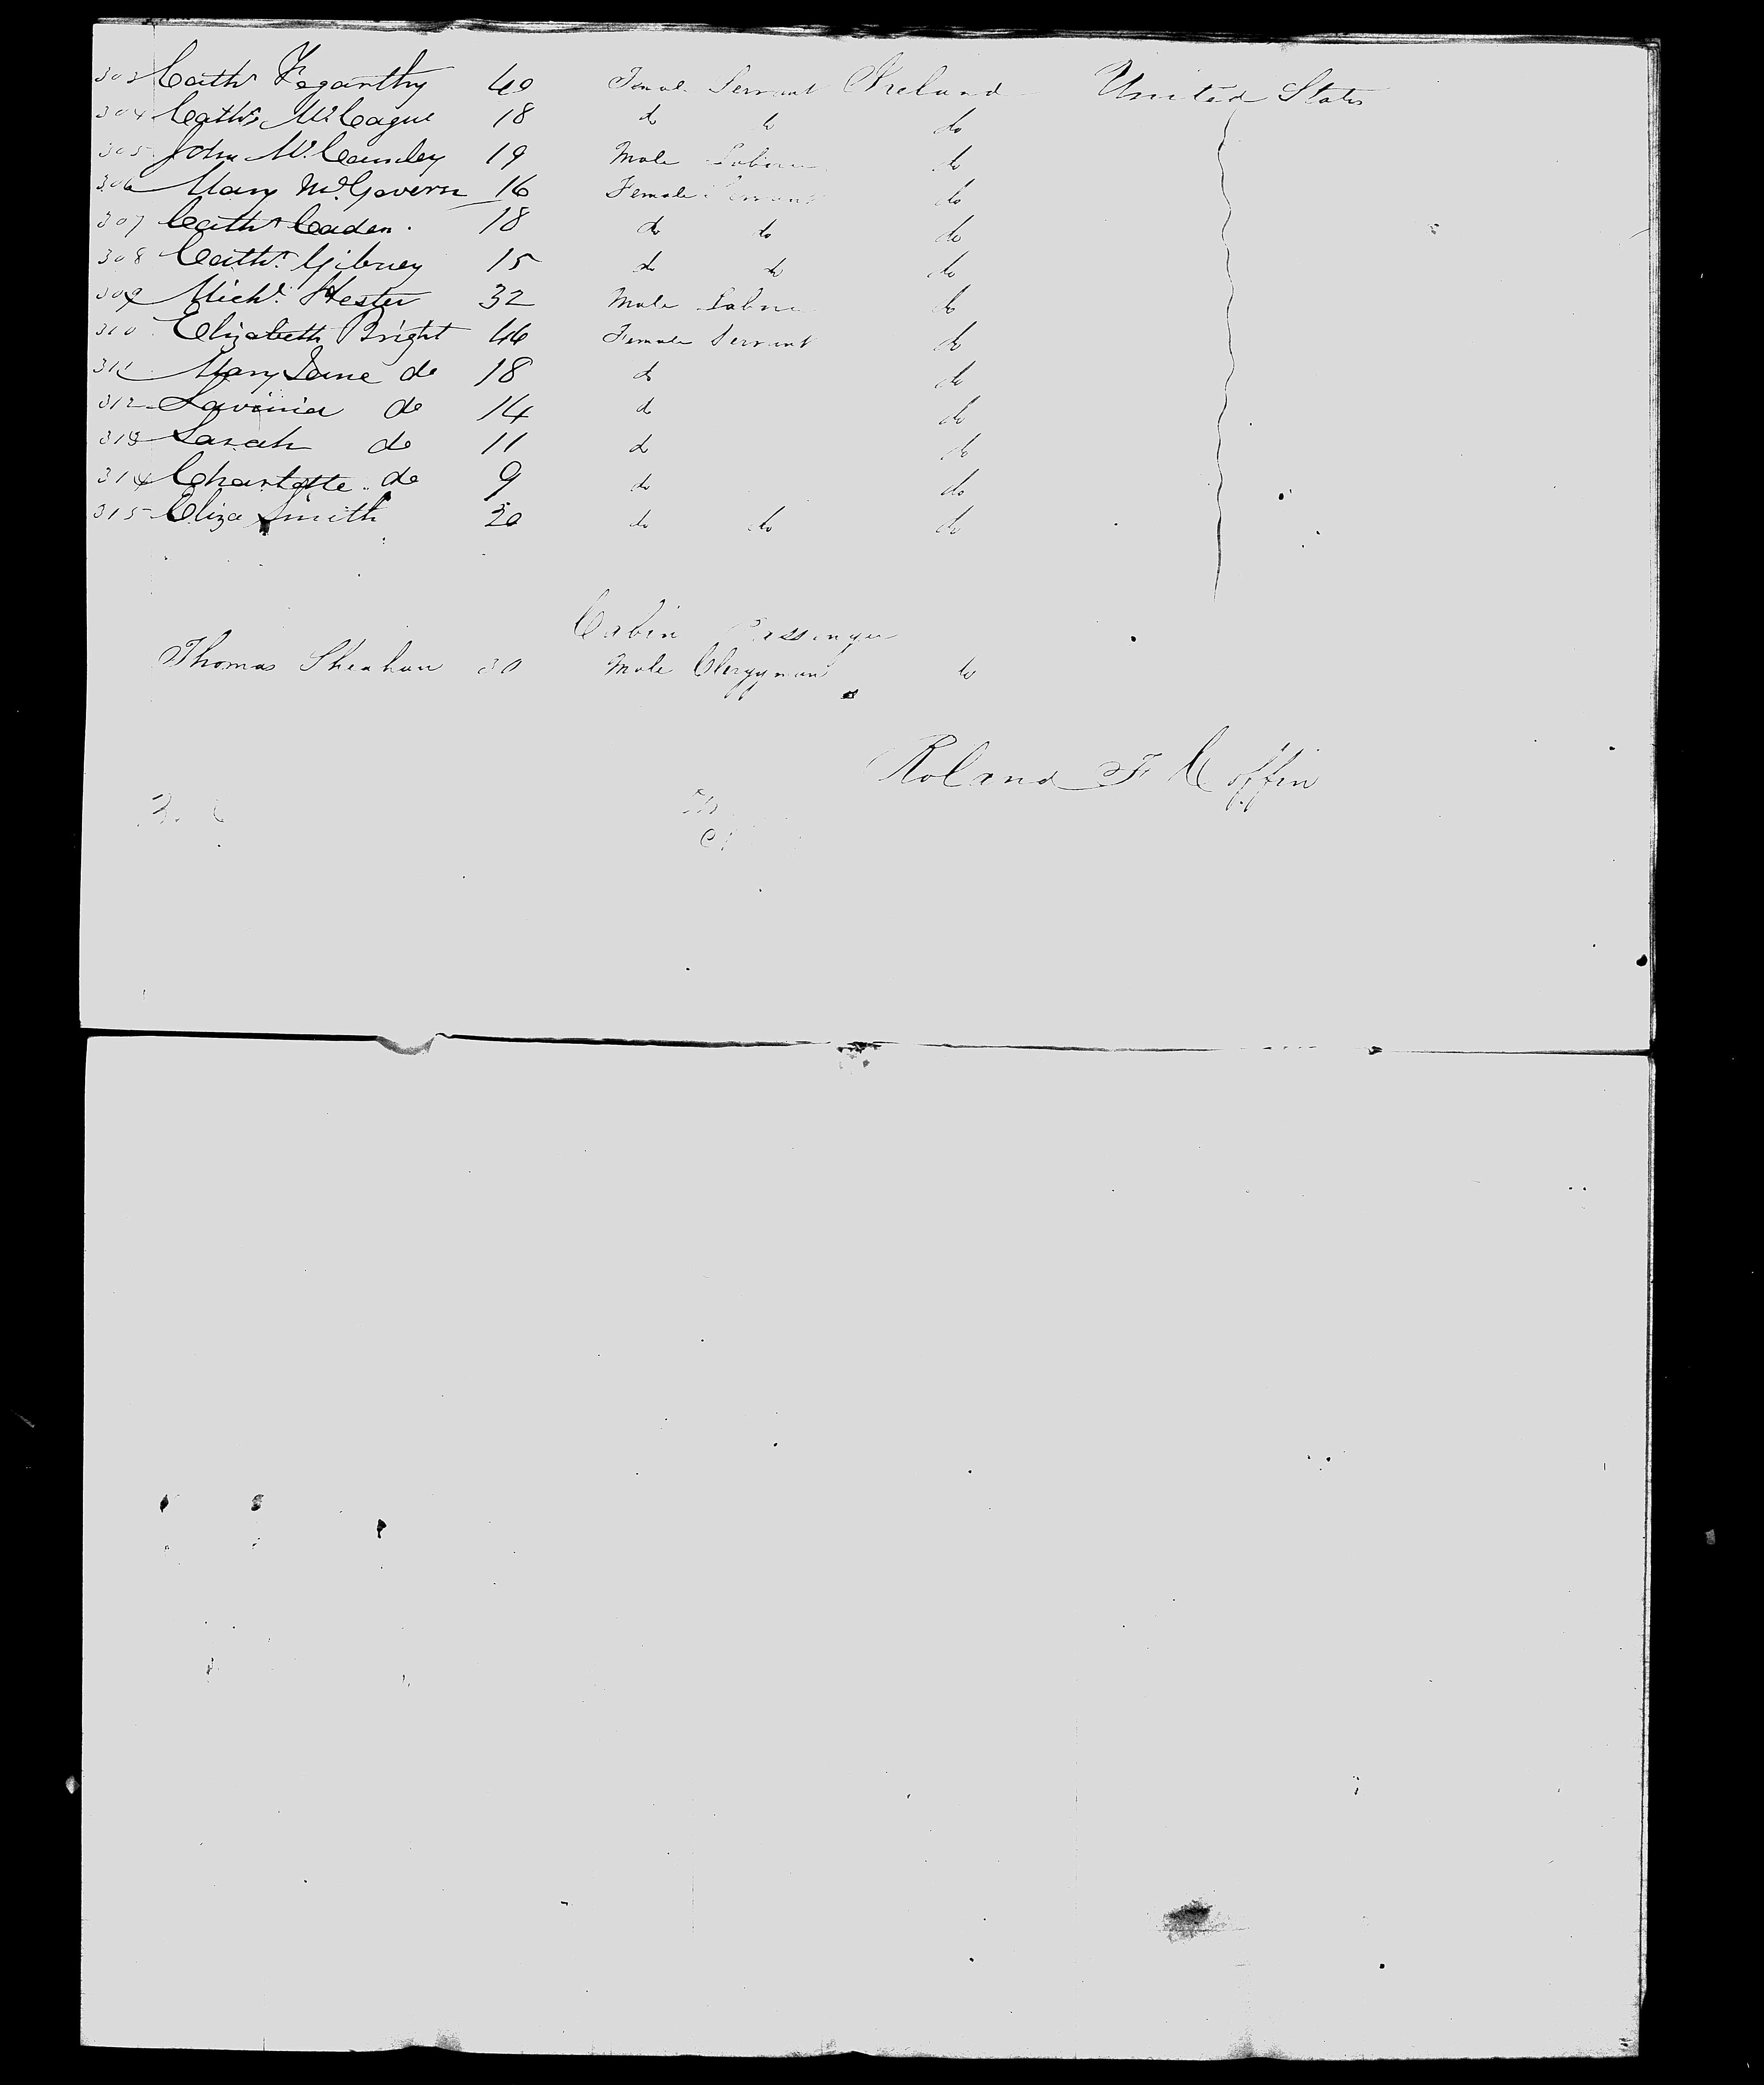 303 Cath. Fogarthy 40 Female Servant Ireland United States
304 Cath. McCague 18 do do do
305 John McCauley 19 Male Labour do
306 Mary McGovern 16 Female Servant do
307 Cath. Caden 18 do do do
308 Cath. Gibney 15 do do do
309 Michl. Hester 32 Male Labour do
310 Elizabeth Bright 46 Female Servant do
311 Mary Jane do 18 do do
312 Lavinia do 14 do do
313 Sarah do 11 do do
314 Charlotte do 9 do do
315 Eliza Smith 20 do do do
Cabin Passenger
Thomas Sheahan 30 Male Clergyman do
Roland F Coffin